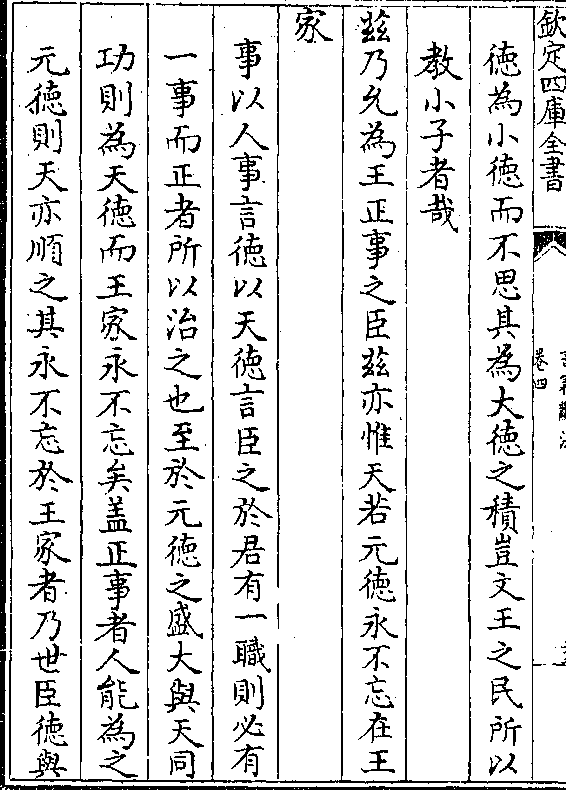 欽定四庫全書
卷四
德為小德而不思其為大德之積豈文王之民所以
教小子者哉
兹乃允為王正事之臣兹亦惟天若元德永不忘在王
家
事以人事言德以天德言臣之於君有一職則必有
一事而正者所以治之也至於元德之盛大與天同
功則為天德而王家永不忘矣盖正事者人能為之
元德則天亦順之其永不忘於王家者乃世臣德與